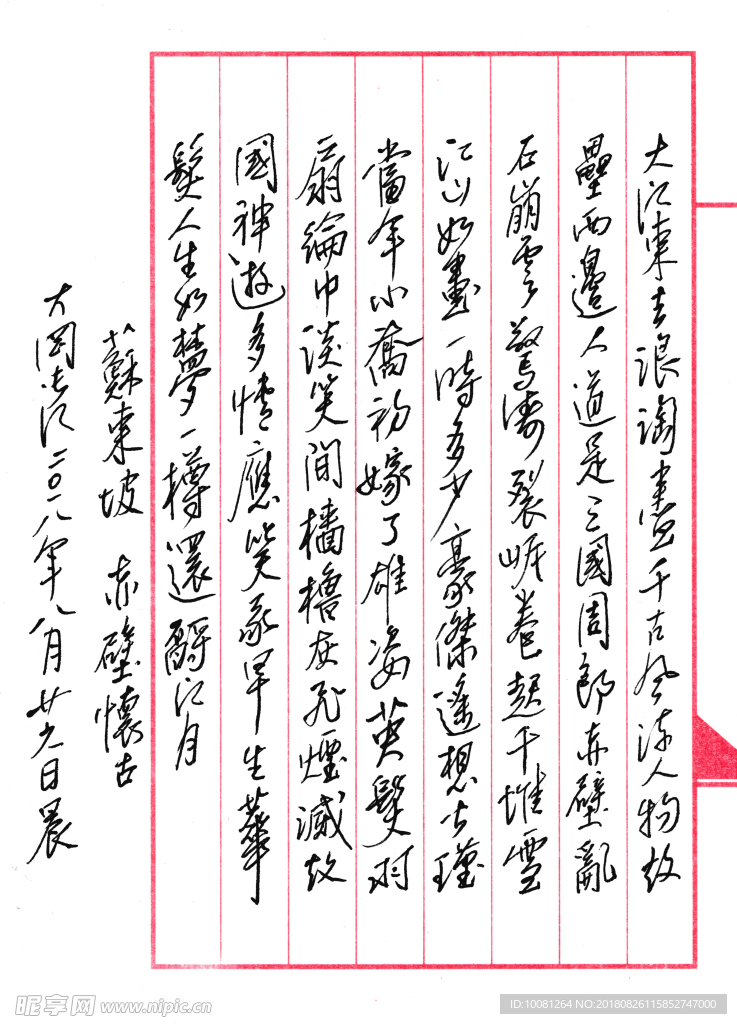 大江東去浪淘盡千古風流人物故
壘西邊人道是三國周郎赤壁亂
石崩雲驚濤裂崕卷起千堆雪
江山如畫一時多少豪傑遙想公瑾
當年小喬初嫁了雄姿英髮羽
扇綸巾談笑間檣櫓灰飛煙滅故
國神遊多情應笑我早生華
髮人生如夢一樽還酹江月
蘇東坡 赤壁懷古
大岡长江二〇一八年八月廿六日晨
昵享网 www.nipic.cn
ID:10081264 NO:20180826115852747000